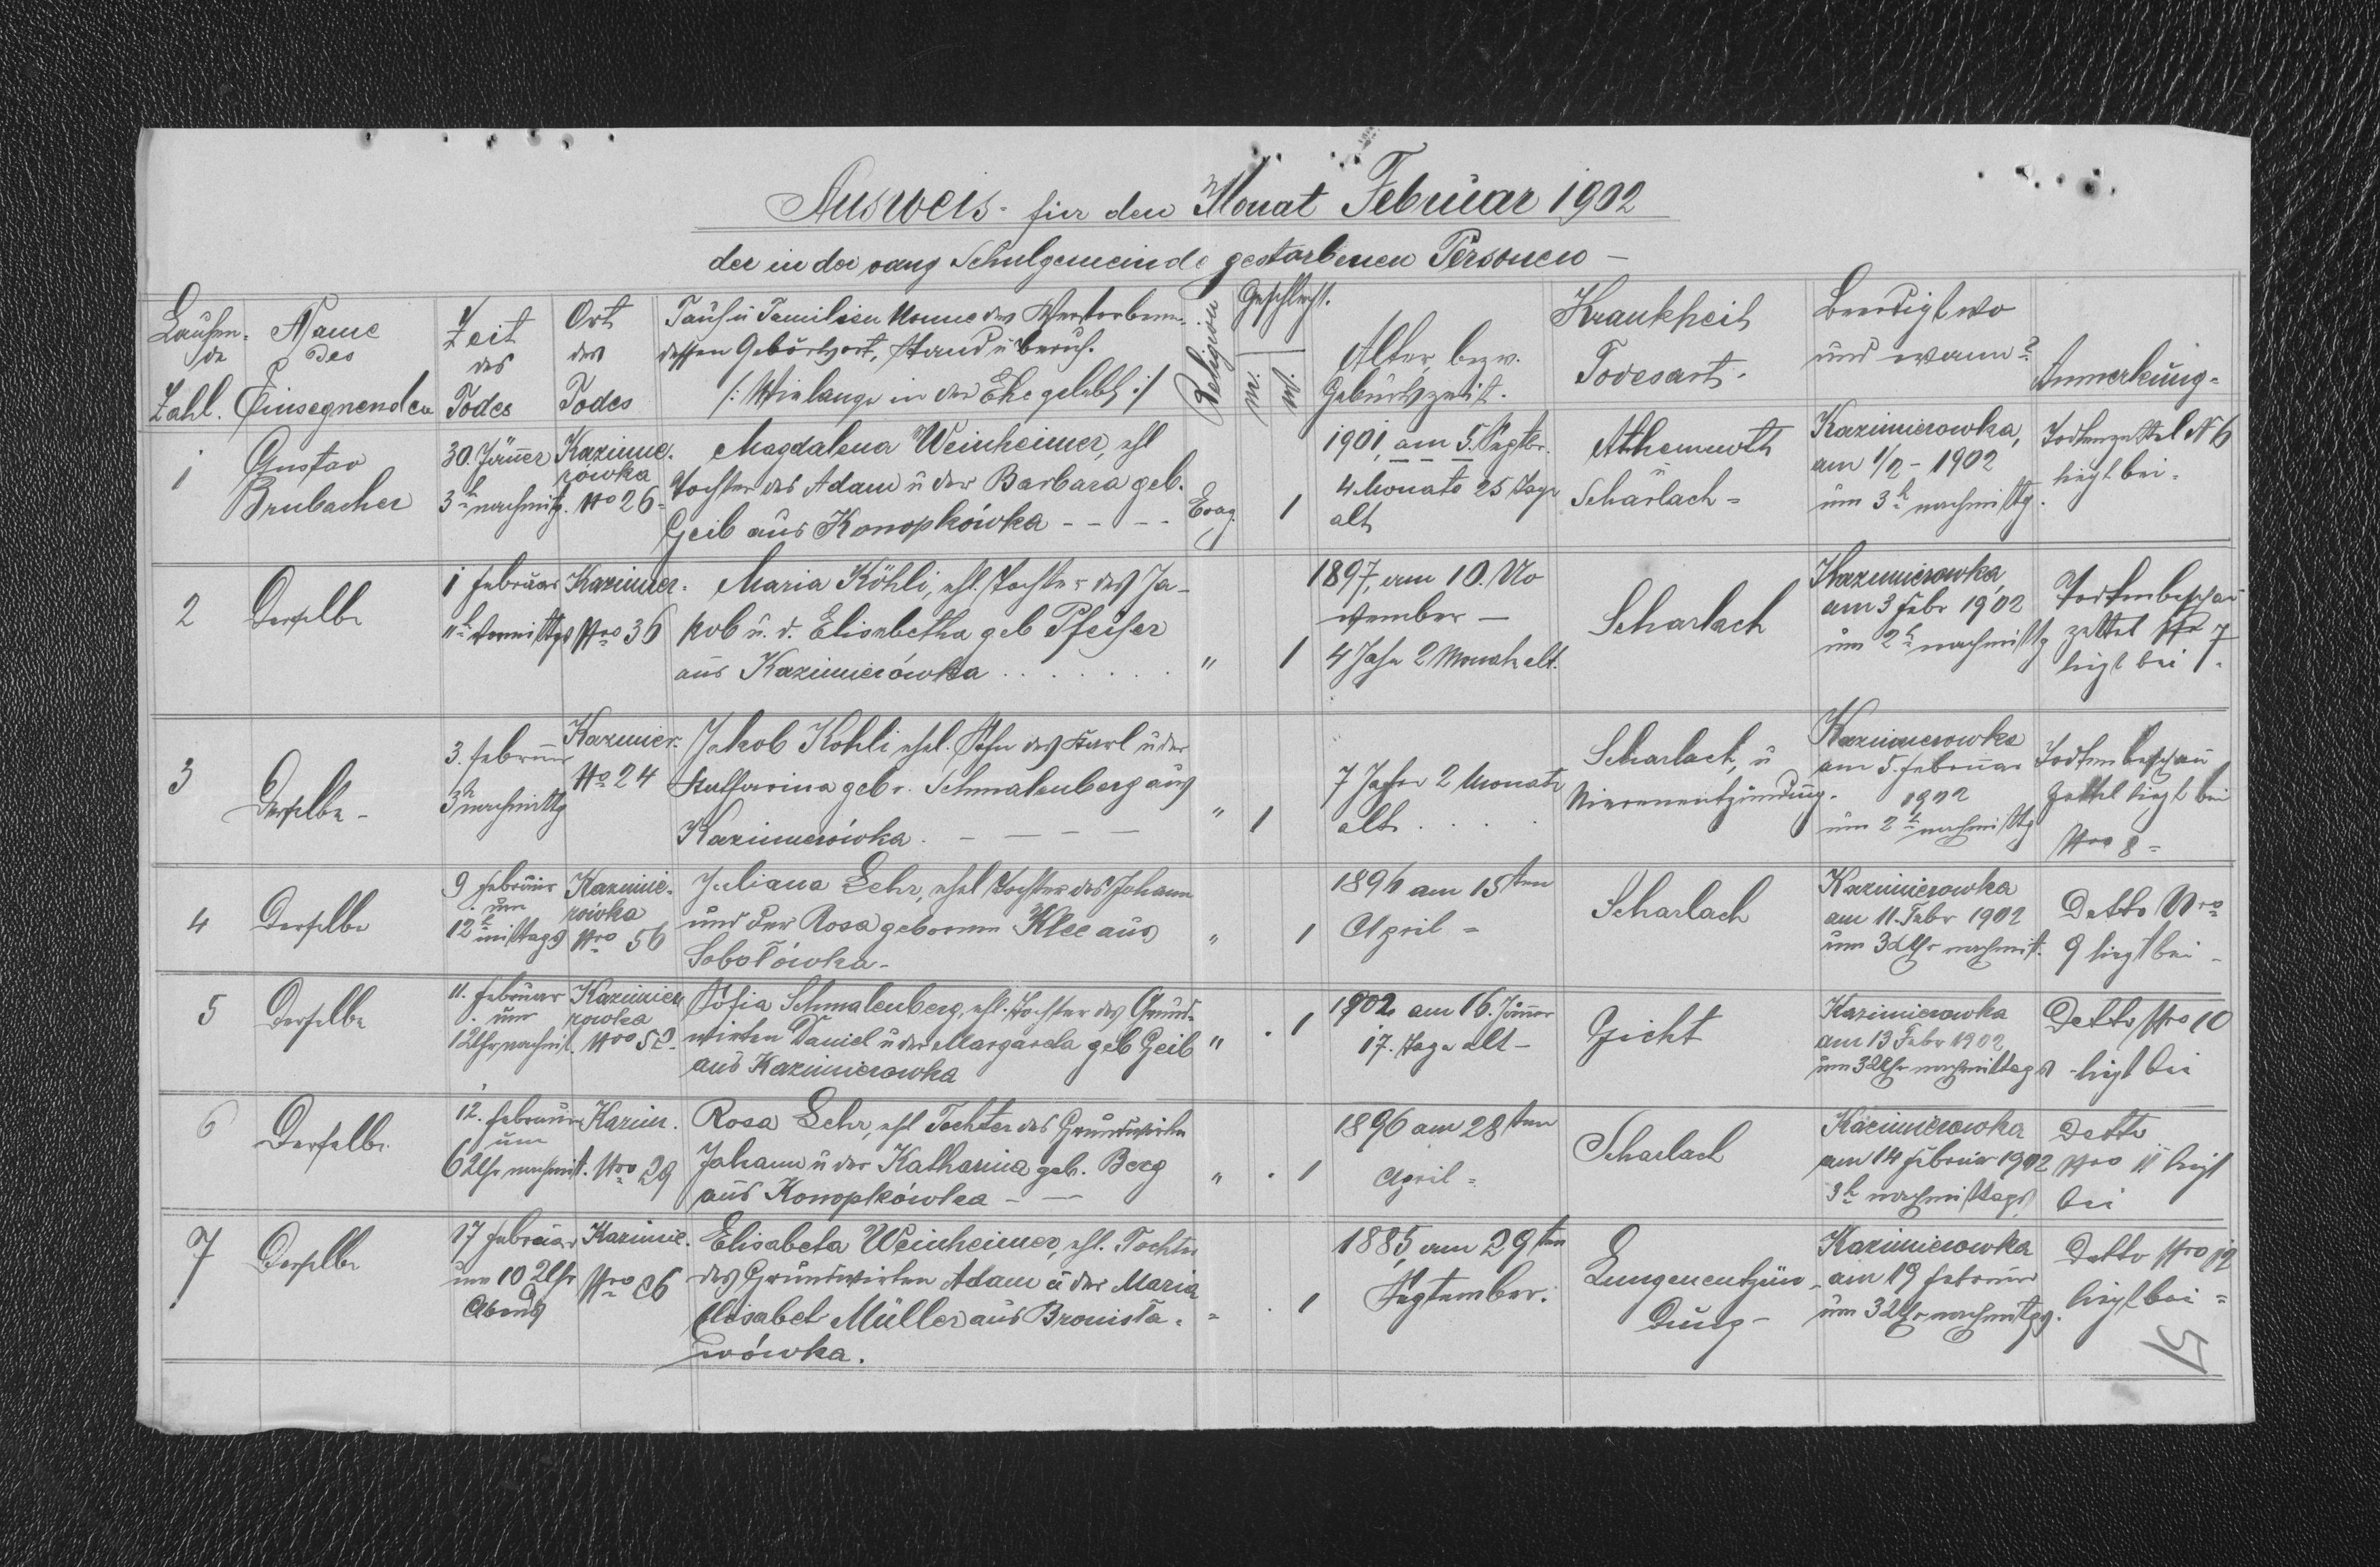 Ausweis für den Monat Februar 1902
der in der evang Schulgemeinde gestorbenen Personen –
Laufen-
de
Zahl.
Name
des
Einsegnenden
Zeit
des
Todes
Ort
des
Todes
Tauf u Familien Name des Verstorbenen
dessen Geburtsort, Stand u Beruf.
/: Wie lange in der Ehe gelebt :/
Religion
Geschlecht.
m.
w.
Alter, bezw.
Geburtszeit.
Krankheit
Todesart.
Beerdigt wo
und wann?
Anmerkung
1
Gustav
Brubacher
30. Jänner
3h nachmitg.
Kazimie-
rówka
No 26
Magdalena Weinheimer, ehl
Tochter des Adam u der Barbara geb.
Geib aus Konopkówka
Evag.
1
1901, am 5. Septer.
4 Monate 25 Tage
alt
Athemnoth
Scharlach
Kazimierowka,
am 1/2 - 1902
um 3h nachmittg.
Todtenzettel N 6
liegt bei.
2
Derselbe
1 Februar
11h Vormittgs
Kazimier.
Nro 36
Maria Köhli, ehl. Tochter des Ja-
kob u. d. Elisabetha geb Pfeifer
aus Kazimierówka
"
1
1897, am 10. No
vember –
4 Jahr 2 Monate alt.
Scharlach
Kazimierowka,
am 3 Febr 1902
um 2h nachmittg
Todtenbeschau
zettel Nr 7
liegt bei
3
Derselbe
3. Februar
3h nachmittg
Kazimier.
No 24
Jakob Kohli ehel. Sohn des Karl u der
Katharina geb. Schmalenberg aus
Kazimierówka
"
1
7 Jahre 2 Monate
alt
Scharlach, u
Nierenentzündung.
Kazimierowka
am 5. Februar
1902
um 2h nachmittg
Todtenbeschau
zettel liegt bei
Nro 8
4
Derselbe
9 Februar
um
12h mittags
Kazimie-
rówka
Nro 56
Juliana Lehr, ehel Tochter des Johann
und der Rosa geborene Klee aus
Sobotówka
"
1
1896 am 15ten
April
Scharlach
Kazimierowka
am 11. Febr 1902
um 3 Uhr nachmit.
Detto Nro
9 liegt bei
5
Derselbe
11. Februar
um
12 Uhr nachmit.
Kazimier
rowka
Nro 52
Sofia Schmalenberg, ehl. Tochter des Grund-
wirten Daniel u der Margareta geb Geib
aus Kazimierowka
"
1
1902 am 16. Jänner
17. Tage alt –
Gicht
Kazimierowka
am 13 Febr 1902
um 3 Uhr nachmittags
Detto Nro 10
liegt bei
6
Derselbe
12. Februar
um
6 Uhr nachmit.
Kazim.
Nro 29
Rosa Lehr, ehl Tochter des Grundwirten
Johann u der Katharina geb. Berg
aus Konopkówka
"
1
1896 am 28ten
April
Scharlach
Kazimierowka
am 14 Februar 1902
3h nachmittags
Detto
Nro 11 liegt
bei
7
Derselbe
17 Februar
um 10 Uhr
Abends
Kazimie.
Nro 26
Elisabeta Weinheimer, ehl. Tochter
des Grundwirten Adam u der Maria
Elisabet Müller aus Bronista-
wówka.
1
1885, am 29ten
September.
Lungenentzün
dung
Kazimierowka
am 19 Februar
um 3 Uhr nachmitgs.
Detto Nro 12
liegt bei